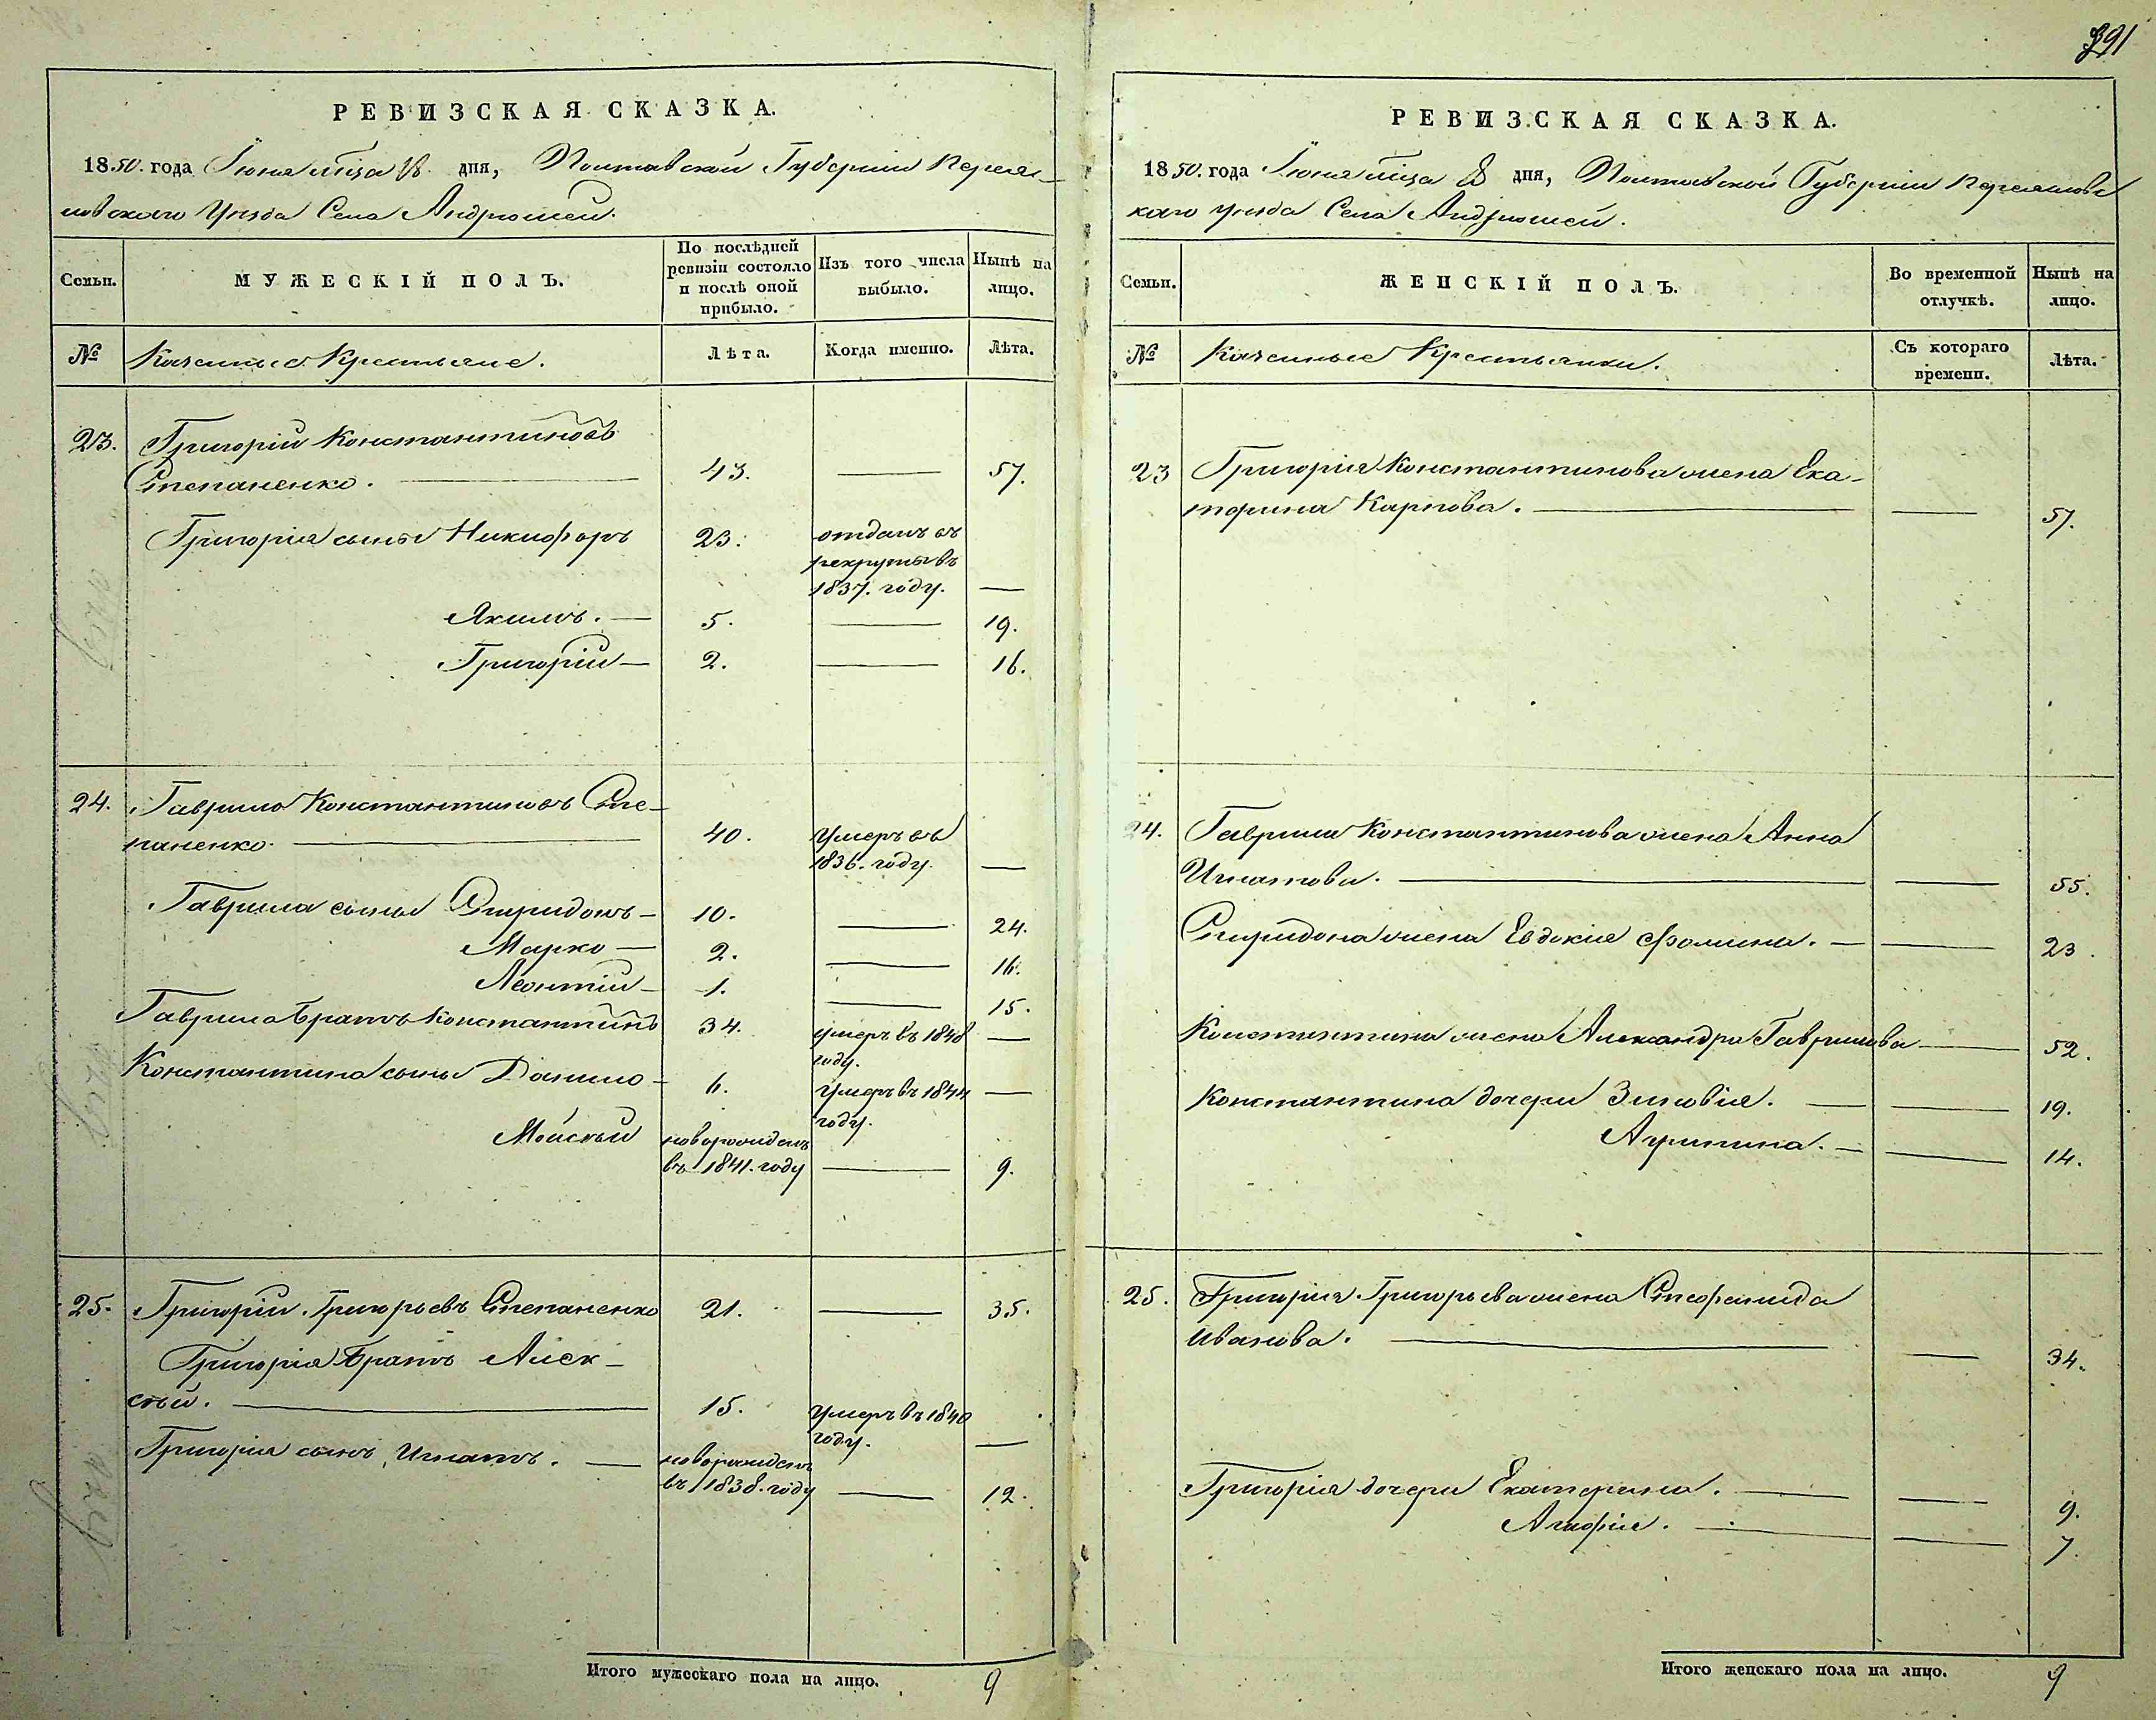 391
РЕВИЗСКАЯ СКАЗКА.
1850. года Іюня мѣсца дня, Полтавской Губерніи Переяс-
ловскаго Уѣзда Села Андрюшей.
Семьи.
МУЖЕСКІЙ ПОЛЪ.
По послѣдней
ревизіи состояло
и послѣ оной
прибыло.
Изъ того числа
выбыло.
Нынѣ на
лицо.
№
Казенные Крестьяне.
Лѣта.
Когда именно.
Лѣта.
23. Григорій Константиновъ
Степаненко. 43. 57.
Григорія сыны Никифоръ 23. отданъ въ
рекруты въ
1837. году.
Якимъ. 5. 19.
Григорій 2. 16.
24. Гаврило Константиновъ Сте-
паненко. 40. Умеръ въ
1836. году.
Гаврила сыны Спиридонъ 10. 24.
Марко 2. 16.
Леонтій 1. 15.
Гаврила братъ Константинъ 34. умеръ въ 1848
году.
Константина сыны Данило 6. Умеръ въ 1844
году.
Мойсѣй новорожденъ
въ 1841. году 9.
25. Григорій Григорьевъ Степаненко 21. 35.
Григорія братъ Алек-
сѣй. 15. Умеръ въ 1840
году.
Григорія сынъ Игнатъ. новорожденъ
въ 1838. году 12.
Итого мужескаго пола на лицо. 9
РЕВИЗСКАЯ СКАЗКА.
1850. года Іюня мѣсца дня, Полтавской Губерніи Переяславс
каго уѣзда Села Андрюшей.
Семьи.
ЖЕНСКІЙ ПОЛЪ.
Во временной
отлучкѣ.
Нынѣ на
лицо.
№
Казенные Крестьянки.
Съ котораго
времени.
Лѣта.
23 Григорія Константинова жена Ека-
терина Карпова. 57.
24. Гаврила Константинова жена Анна
Игнатова. 55.
Спиридона жена Евдокія Фомина. 23.
Константина жена Александра Гаврилова 52.
Константина дочери Зиновія. 19.
Агрипина. 14.
25. Григорія Григорьева жена Стефанида
Иванова. 34.
Григорія дочери Екатерина. 9.
Агафія. 7.
Итого женскаго пола на лицо. 9